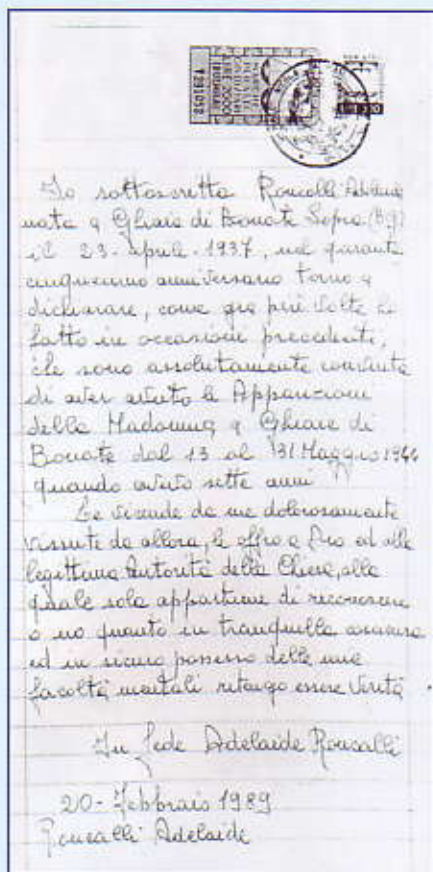 1291052
LIRE 2000
Io sottoscritta Roncalli Adelaide
nata a Ghiaie di Bonate Sopra (Bg)
il 23-aprile-1937, nel quaranta
cinquesimo anniversario torno a
dichiarare, come già più volte ho
fatto in occasioni precedenti,
che sono assolutamente convinta
di aver avuto le Apparizioni
della Madonna a Ghiaie di
Bonate dal 13 al 31 Maggio 1944
quando avevo sette anni
Le vicende da me dolorosamente
vissute da allora, le offro a Dio ed alla
legittima Autorità della Chiesa, alla
quale sola appartiene di riconoscere
o no quanto in tranquilla coscienza
ed in sicuro possesso delle mie
facoltà mentali ritengo essere Verità
In fede Adelaide Roncalli
20-Febbraio 1989
Roncalli Adelaide